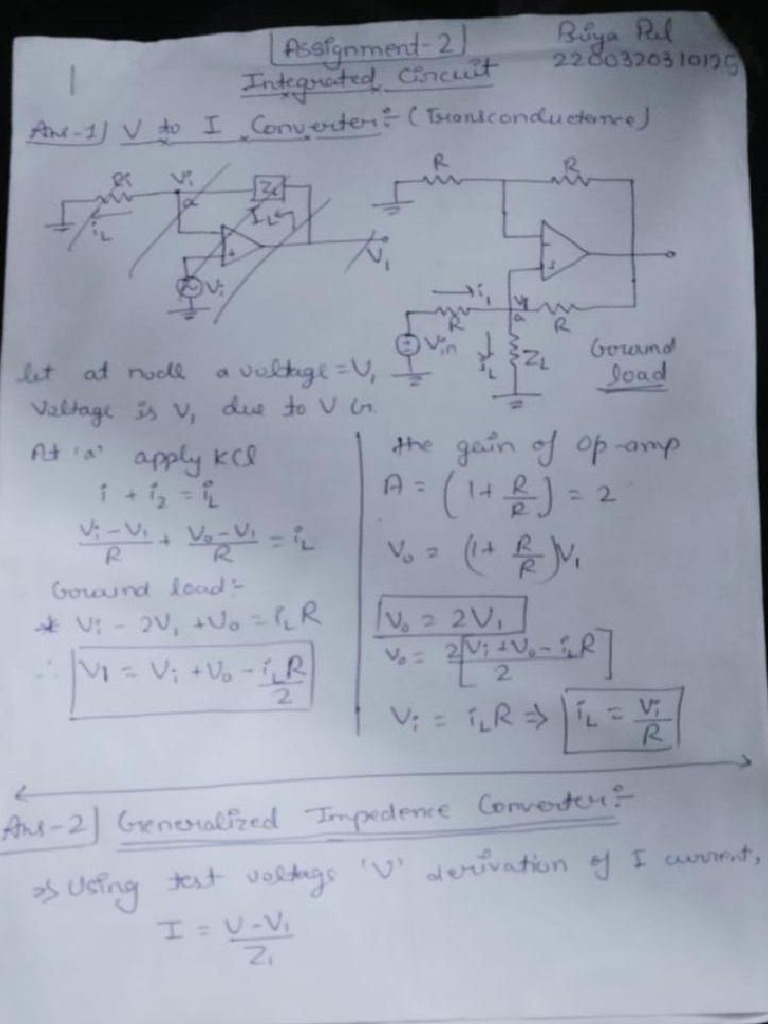 Assignment-2
Priya Pal
2200320310125
Integrated Circuit
1
Ans-1) V to I Converter:- (Transconductance)
Ri
Vi
a
iL
ZL
IL
+
Vi
V1
R
R
-
+
i1
V1
a
R
R
Vin
iL
ZL
Goround load
let at node a voltage = V1
Voltage is V1 due to V Gr.
At 'a' apply KCl
i + i2 = iL
Vi-V1/R + Vo-V1/R = iL
Goround load:-
* Vi - 2V1 + Vo = iLR
∴ V1 = Vi + Vo - iLR/2
the gain of op-amp
A = (1+ R/R) = 2
Vo = (1+ R/R)V1
Vo = 2V1
Vo = 2[Vi+Vo-iLR/2]
Vi = iLR ⇒ iL = Vi/R
Ans-2) Generalized Impedence Converter:-
⇒ Using test voltage 'V' derivation of I current,
I = V-V1/Z1